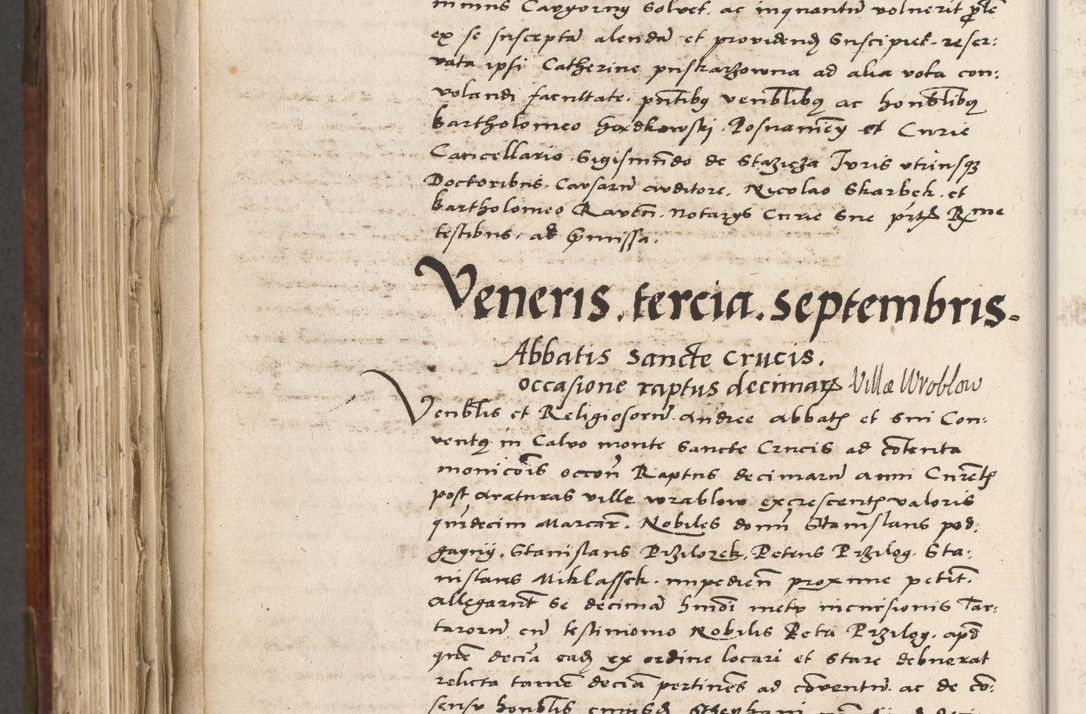 minus Cavyorny solvet. ac inquantu voluerit prole
ex se suscepta alenda et providend suscipiet. reser:
vata ipsi Catherine puskarzowna ad alia vota con:
volandi facultate. pntibq venblibq ac honblibq
bartholomeo Gordkowski. Posnanien et Curie
Cancellario. Sigismudo de Stazicza Juris utriusqz
Doctoribus. Causaru auditore. Nycolao Skarbek. et
bartholomeo Raven. notarys Curie Sue prte Rme
testibus. ad pmissa.
Veneris. tercia. septembris.
Abbatis sancte crucis.
occasione raptus decimar Villæ Wroblow
Venblis et Religiosoru Andree abbatis et sui Con:
ventq in Calvo monte Sancte Crucis ad cotenta
monicois occon Raptus decimaru Anni Curetis
post araturas ville wrablow excrescentis valoris
quidecim Marcar. Nobiles domi Stanislaus pod:
gayny. Stanislaus Przilozek. Petrus Przilog. Sta:
nislaus Miklassek. impedien proxime petit.
Allegarut se decima hmoi metu incursionis Tar:
tarorum cu testimonio Nobilis Petri Przilog. apd
que decia ead ex ordine locari et stare debuerat
relicta tamen decia pertines ad coventu. ac de co:
sensu honblis